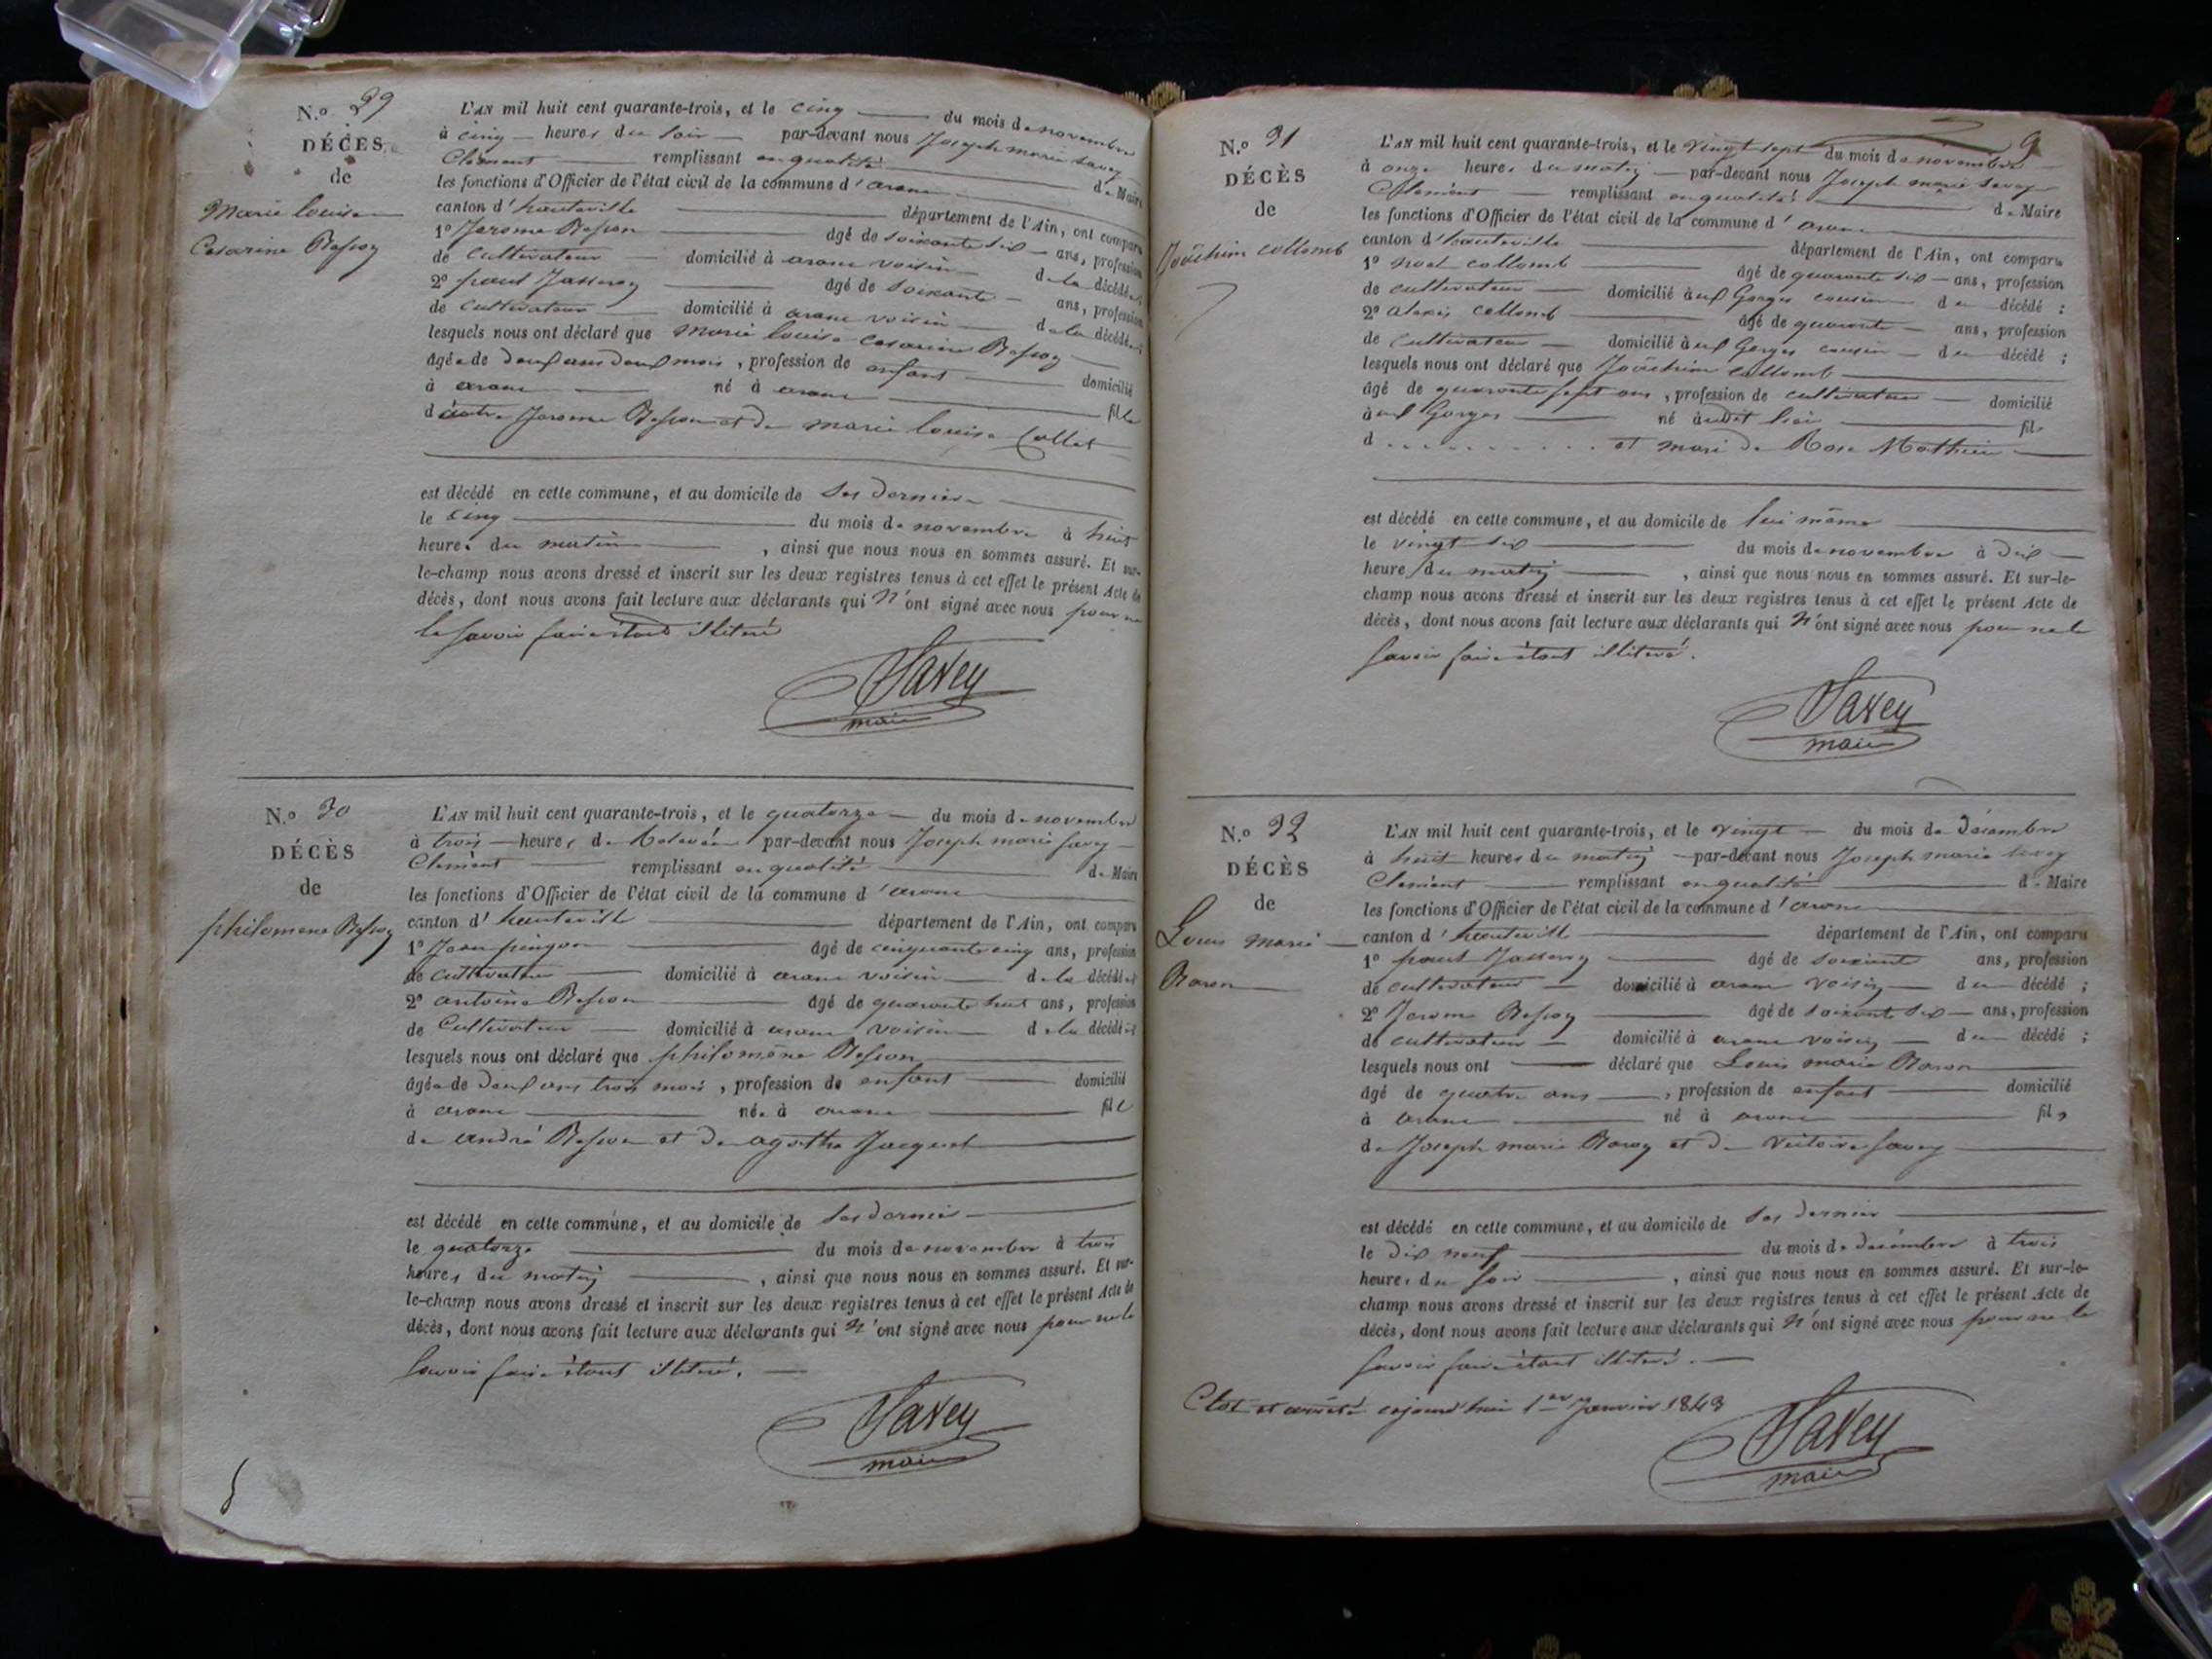 N.o 29
DÉCÈS
de
Marie louise
Cesarine Besson
L'AN mil huit cent quarante-trois, et le cinq du mois de novembre
à cinq heures du soir par-devant nous Joseph marie Savey
Clément remplissant en qualité de Maire
les fonctions d'Officier de l'état civil de la commune d'aranc
canton d'hauteville département de l'Ain, ont comparu
1o Jerome Besson âgé de soixante six ans, profession
de cultivateur domicilié à aranc voisin de la décédée;
2o paul Jasseroz âgé de soixante ans, profession
de cultivateur domicilié à aranc voisin de la décédée;
lesquels nous ont déclaré que Marie louise cesarine Besson
âgée de deux ans deux mois, profession de enfant domicilié
à aranc né à aranc fille
d'autre Jerome Besson et de marie louise Collet
est décédé en cette commune, et au domicile de ses dernière
le cinq du mois de novembre à huit
heures du matin, ainsi que nous nous en sommes assuré. Et sur-
le-champ nous avons dressé et inscrit sur les deux registres tenus à cet effet le présent Acte de
décès, dont nous avons fait lecture aux déclarants qui n'ont signé avec nous pour ne
le savoir faire étant illitéré
Savey
maire
N.o 30
DÉCÈS
de
philomene Besson
L'AN mil huit cent quarante-trois, et le quatorze du mois de novembre
à trois heures de Relevée par-devant nous Joseph marie Savey
Clement remplissant en qualité de Maire
les fonctions d'Officier de l'état civil de la commune d'aranc
canton d'hauteville département de l'Ain, ont comparu
1o Jean pingon âgé de cinquante cinq ans, profession
de cultivateur domicilié à aranc voisin de la décédée;
2o antoine Besson âgé de quarante huit ans, profession
de Cultivateur domicilié à aranc voisin de la décédée;
lesquels nous ont déclaré que philomène Besson
âgée de deux ans trois mois, profession de enfant domicilié
à aranc née à aranc fille
de andré Besson et de agathe Jacquet
est décédé en cette commune, et au domicile de ses dernier
le quatorze du mois de novembre à trois
heures du matin, ainsi que nous nous en sommes assuré. Et sur-
le-champ nous avons dressé et inscrit sur les deux registres tenus à cet effet le présent Acte de
décès, dont nous avons fait lecture aux déclarants qui n'ont signé avec nous pour ne le
savoir faire étant illitéré.
Savey
maire
9
N.o 31
DÉCÈS
de
Joâchim collomb
L'AN mil huit cent quarante-trois, et le vingt sept du mois de novembre
à onze heures du matin par-devant nous Joseph marie Savey
Clément remplissant en qualité de Maire
les fonctions d'Officier de l'état civil de la commune d'aranc
canton d'hauteville département de l'Ain, ont comparu
1o noel collomb âgé de quarante six ans, profession
de cultivateur domicilié aux Gorges cousin du décédé;
2o alexis collomb âgé de quarante ans, profession
de cultivateur domicilié aux Gorges cousin du décédé;
lesquels nous ont déclaré que Joâchim collomb
âgé de quarante sept ans, profession de cultivateur domicilié
aux Gorges né audit lieu fils
d . . . . . . . . . et mari de Rose Mathieu
est décédé en cette commune, et au domicile de lui même
le vingt six du mois de novembre à dix
heures du matin, ainsi que nous nous en sommes assuré. Et sur-le-
champ nous avons dressé et inscrit sur les deux registres tenus à cet effet le présent Acte de
décès, dont nous avons fait lecture aux déclarants qui n'ont signé avec nous pour ne le
savoir faire étant illitéré.
Savey
maire
N.o 32
DÉCÈS
de
Louis marie
Baron
L'AN mil huit cent quarante-trois, et le vingt du mois de Décembre
à huit heures du matin par-devant nous Joseph marie Savey
Clement remplissant en qualité de Maire
les fonctions d'Officier de l'état civil de la commune d'aranc
canton d'hauteville département de l'Ain, ont comparu
1o paul Jasseroz âgé de soixante ans, profession
de cultivateur domicilié à aranc voisin du décédé;
2o Jerome Besson âgé de soixante six ans, profession
de cultivateur domicilié à aranc voisin du décédé;
lesquels nous ont déclaré que Louis marie Baron
âgé de quatre ans, profession de enfant domicilié
à aranc né à aranc fils
de Joseph marie Baron et de Victoire Savey
est décédé en cette commune, et au domicile de ses dernier
le dix neuf du mois de décembre à trois
heures du soir, ainsi que nous nous en sommes assuré. Et sur-le-
champ nous avons dressé et inscrit sur les deux registres tenus à cet effet le présent Acte de
décès, dont nous avons fait lecture aux déclarants qui n'ont signé avec nous pour ne le
savoir faire étant illitéré.
Clot et arrêté aujourd'hui 1er Janvier 1843
Savey
maire